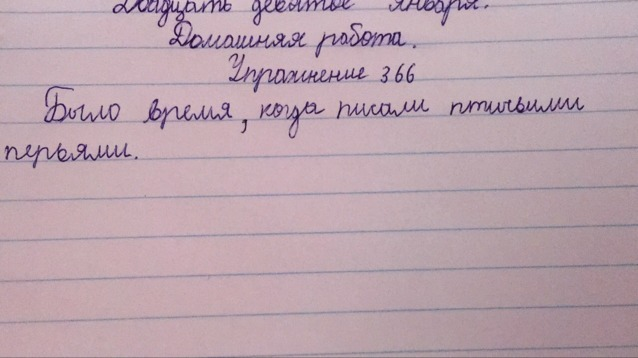 Двадцать девятое января.
Домашняя работа.
Упражнение 366
Было время, когда писали птичьими
перьями.